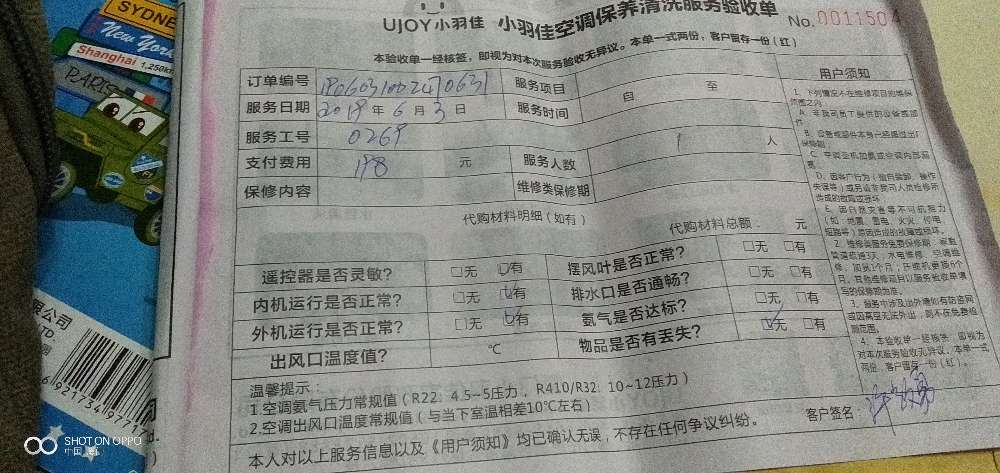 UJOY小羽佳 小羽佳空调保养清洗服务验收单
No.001150
本验收单一经核签，即视为对本次服务验收无异议。本单一式两份，客户留存一份（红）
订单编号 服务项目
服务日期 2018年6月3日 服务时间 自 至
服务工号 0269
支付费用 198 元 服务人数 1 人
保修内容 维修类保修期
代购材料明细（如有） 代购材料总额： 元
遥控器是否灵敏？ □无 □有 摆风叶是否正常？ □无 □有
内机运行是否正常？ □无 □有 排水口是否通畅？ □无 □有
外机运行是否正常？ □无 □有 氨气是否达标？ □无 □有
出风口温度值？ ℃ 物品是否有丢失？ □无 □有
温馨提示：
1.空调氨气压力常规值（R22：4.5~5压力，R410/R32：10~12压力）
2.空调出风口温度常规值（与当下室温相差10℃左右）
本人对以上服务信息以及《用户须知》均已确认无误，不存在任何争议纠纷。
客户签名：
用户须知
1、下列情况不在维修项目的维保
范围之内
A、非我司员工提供的设备或部
件
B、设备或部件本身已经超过出厂
保修期
D、因客户行为（擅自装卸、操作
失误等）或另请非我司人员检修所
造成的故障或损坏
E、因自然灾害等不可抗拒力
（如：地震、雷电、火灾、停电、
短路等）原因造成的故障或损坏。
3、服务中涉及出外墙如有防盗网
或因高空无法外出，则不在免费检
测范围。
4、本验收单一经核签，即视为
对本次服务验收无异议，本单一式
两份，客户留存一份（红）。
SYDNEY
New York
Shanghai 1,250km
PARIS
限公司
LTD
6 921734 9771
SHOT ON OPPO